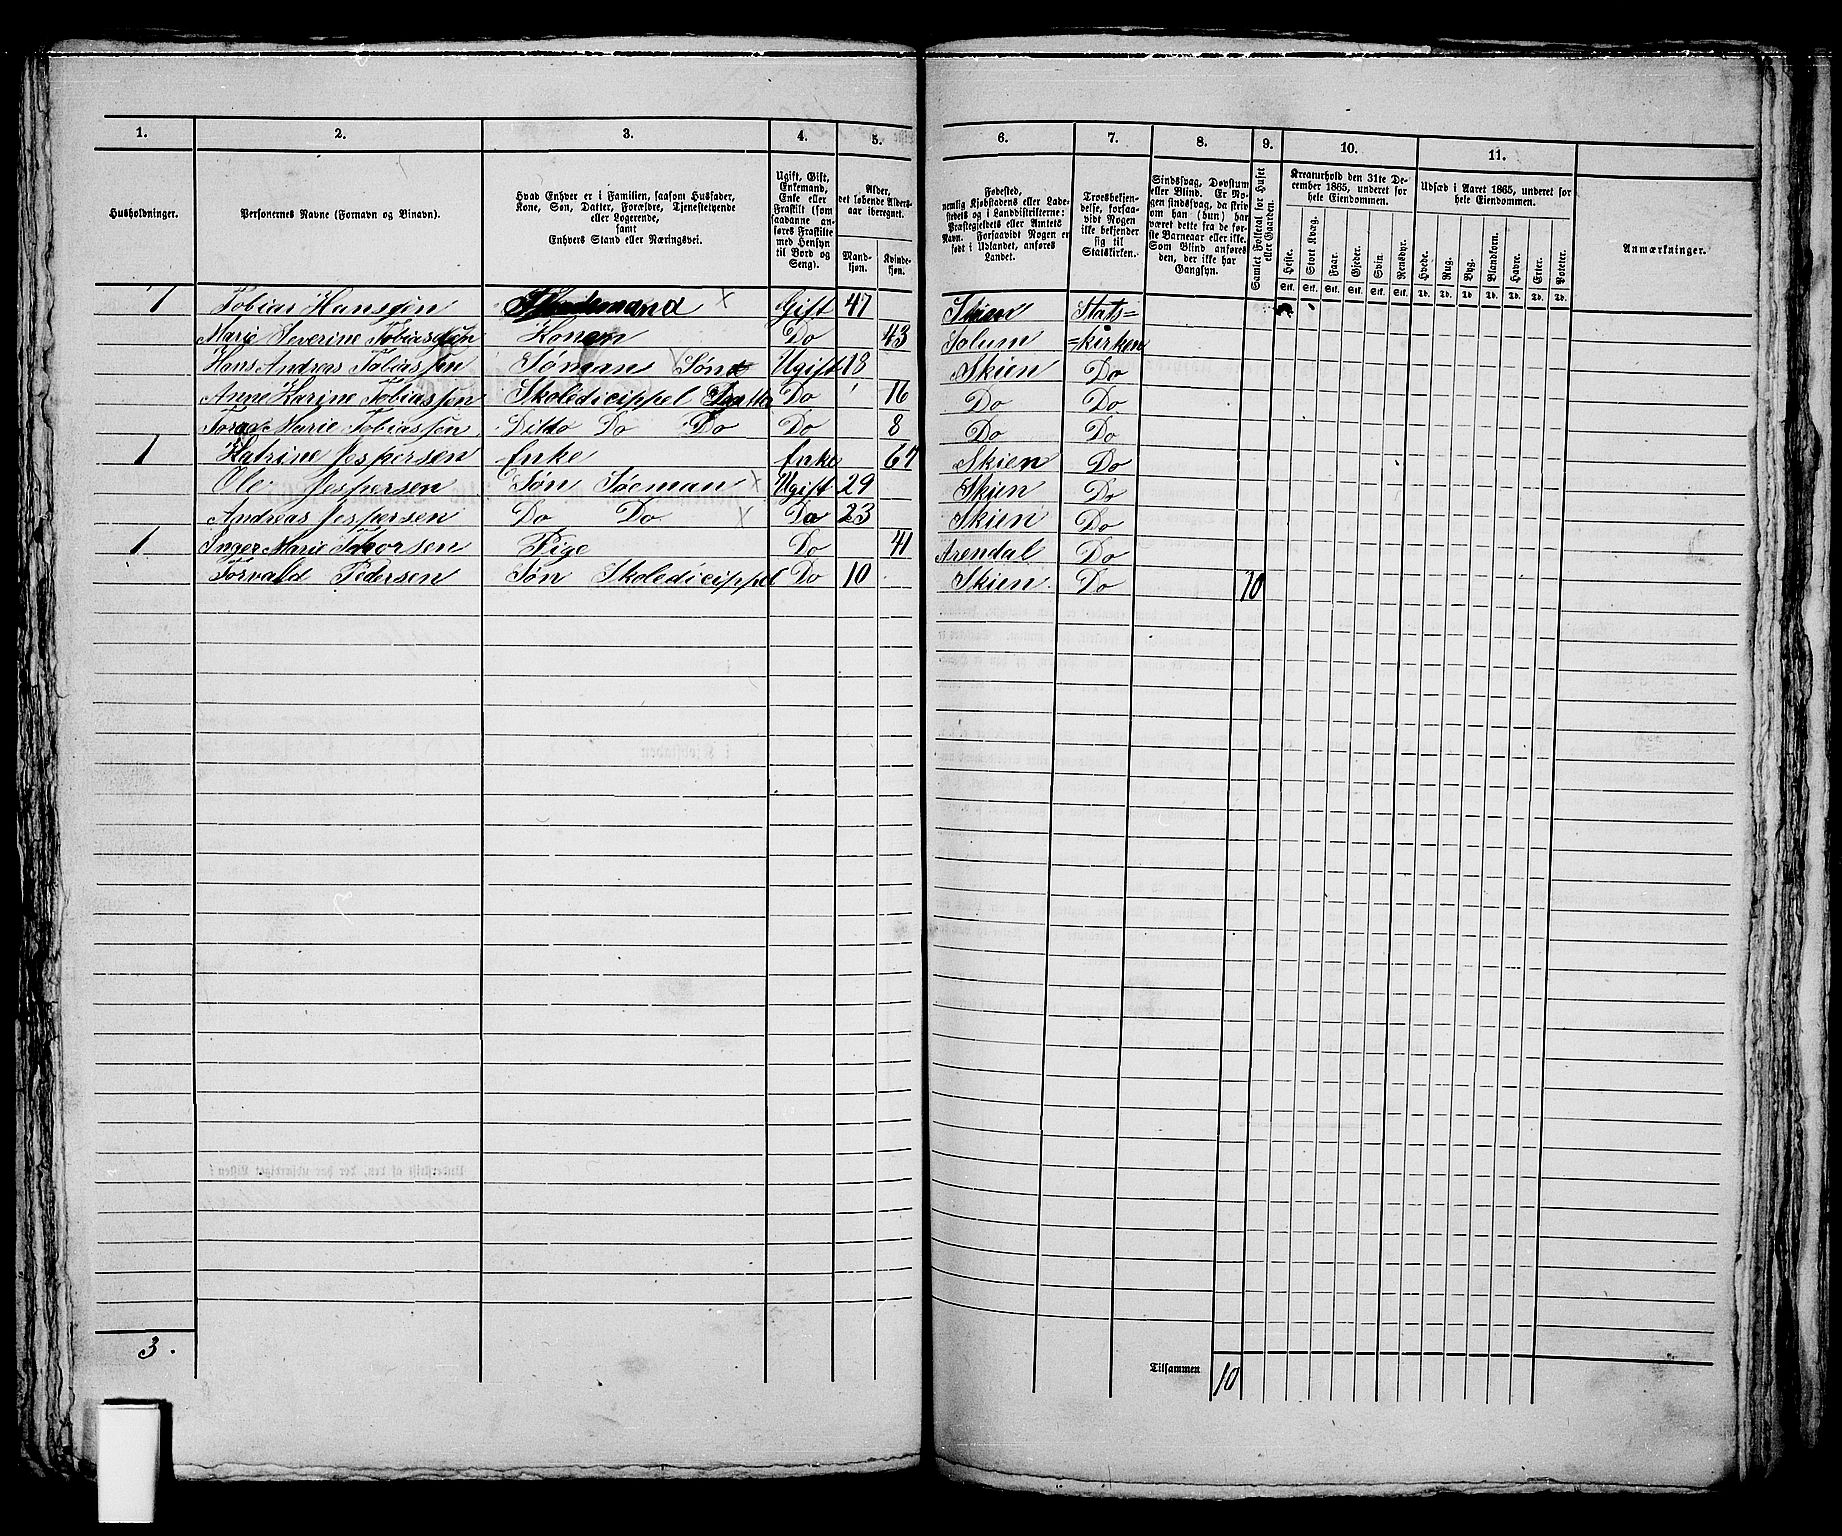 1. 2. 3. 4. 5. 6. 7. 8. 9. 10. 11.
Husholdninger.
Personernes Navne (Fornavn og Binavn).
Hvad Enhver er i Familien, saasom Husfader, Kone, Søn, Datter, Forældre, Tjenestetyende eller Logerende, samt Enhvers Stand eller Næringsvei.
Ugift, Gift, Enkemand, Enke eller Fraskilt (som saadanne anføres Fraskilte med Hensyn til Bord og Seng).
Alder, det løbende Aldersaar iberegnet.
Mandkjøn. Kvindekjøn.
Fødested, nemlig Kjøbstadens eller Ladestedets og i Landdistrikterne: Præstegjeldets eller Amtets Navn. Forsaavidt Nogen er født i Udlandet, anføres Landet.
Troesbekjendelse, forsaavidt Nogen ikke bekjender sig til Statskirken.
Sindssvag, Døvstum eller Blind. Er Nogen sindssvag, da skrives om han (hun) har været dette fra de første Barneaar eller ikke. Som Blind anføres den, der ikke har Gangsyn.
Samlet Folketal for Huset eller Gaarden.
Kreaturhold den 31te December 1865, underet for hele Eiendommen.
Heste. Stort Kvæg. Faar. Gjeder. Svin. Rensdyr.
Stk. Stk. Stk. Stk. Stk. Stk.
Udsæd i Aaret 1865, underet for hele Eiendommen.
Hvede. Rug. Byg. Blandkorn. Havre. Erter. Poteter.
Td. Td. Td. Td. Td. Td. Td.
Anmærkninger.
1 Tobias Hansen × Gift 47 Skien Stats=
Marie Severine Tobiassen Konen Do 43 Solum =kirken
Hans Andreas Tobiassen Søman × Søn Ugift 18 Skien Do
Anne Karine Tobiassen Skoledicippel Datter Do 16 Do Do
Marie Tobiassen Ditto Do Do Do 8 Do Do
1 Katrine Jespersen Enke Enke 67 Skien Do
Ole Jespersen Søn Søeman × Ugift 29 Skien Do
Andreas Jespersen Do Do × Do 23 Skien Do
1 Inger Marie Thorsen Pige Do 41 Arendal Do
Torvald Pedersen Søn Skoledicippel Do 10 Skien Do 10
3.
Tilsammen 10